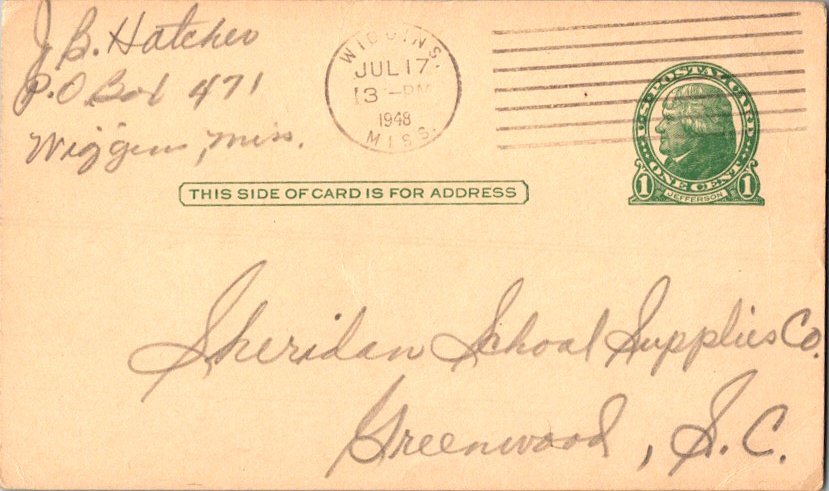 J. B. Hatcher
P.O. Box 471
Wiggins, Miss.
WIGGINS.
JUL 17
3 - PM
1948
MISS.
U.S. POSTAL CARD
ONE CENT
1 1
JEFFERSON
THIS SIDE OF CARD IS FOR ADDRESS
Sheridan School Supplies Co.
Greenwood, S.C.